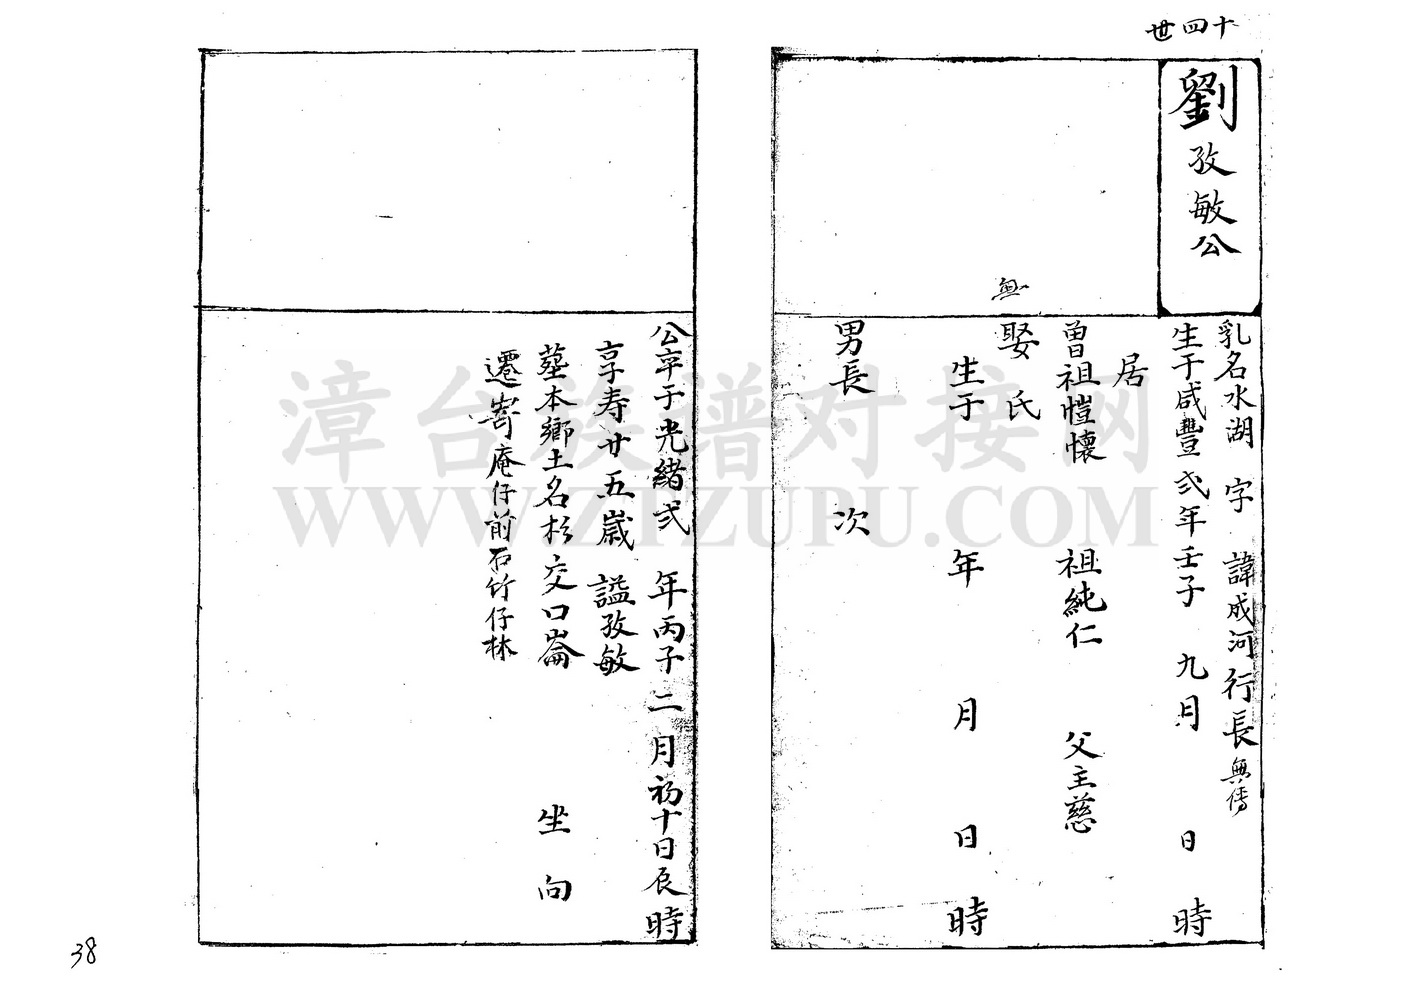 十四世
劉孜敏公
乳名水湖 字 諱成河行長無傳
生于咸豐弍年壬子 九月 日 時
居
曾祖愷懷 祖純仁 父主慈
無
娶氏
生于 年 月 日 時
男長 次
公卒于光緒弍 年丙子二月初十日辰時
享寿廿五歲 謚孜敏
墓本鄉土名杉交口崙 坐 向
遷寄庵仔前石竹仔林
38
漳台族谱对接网
WWW.ZTZUPU.COM